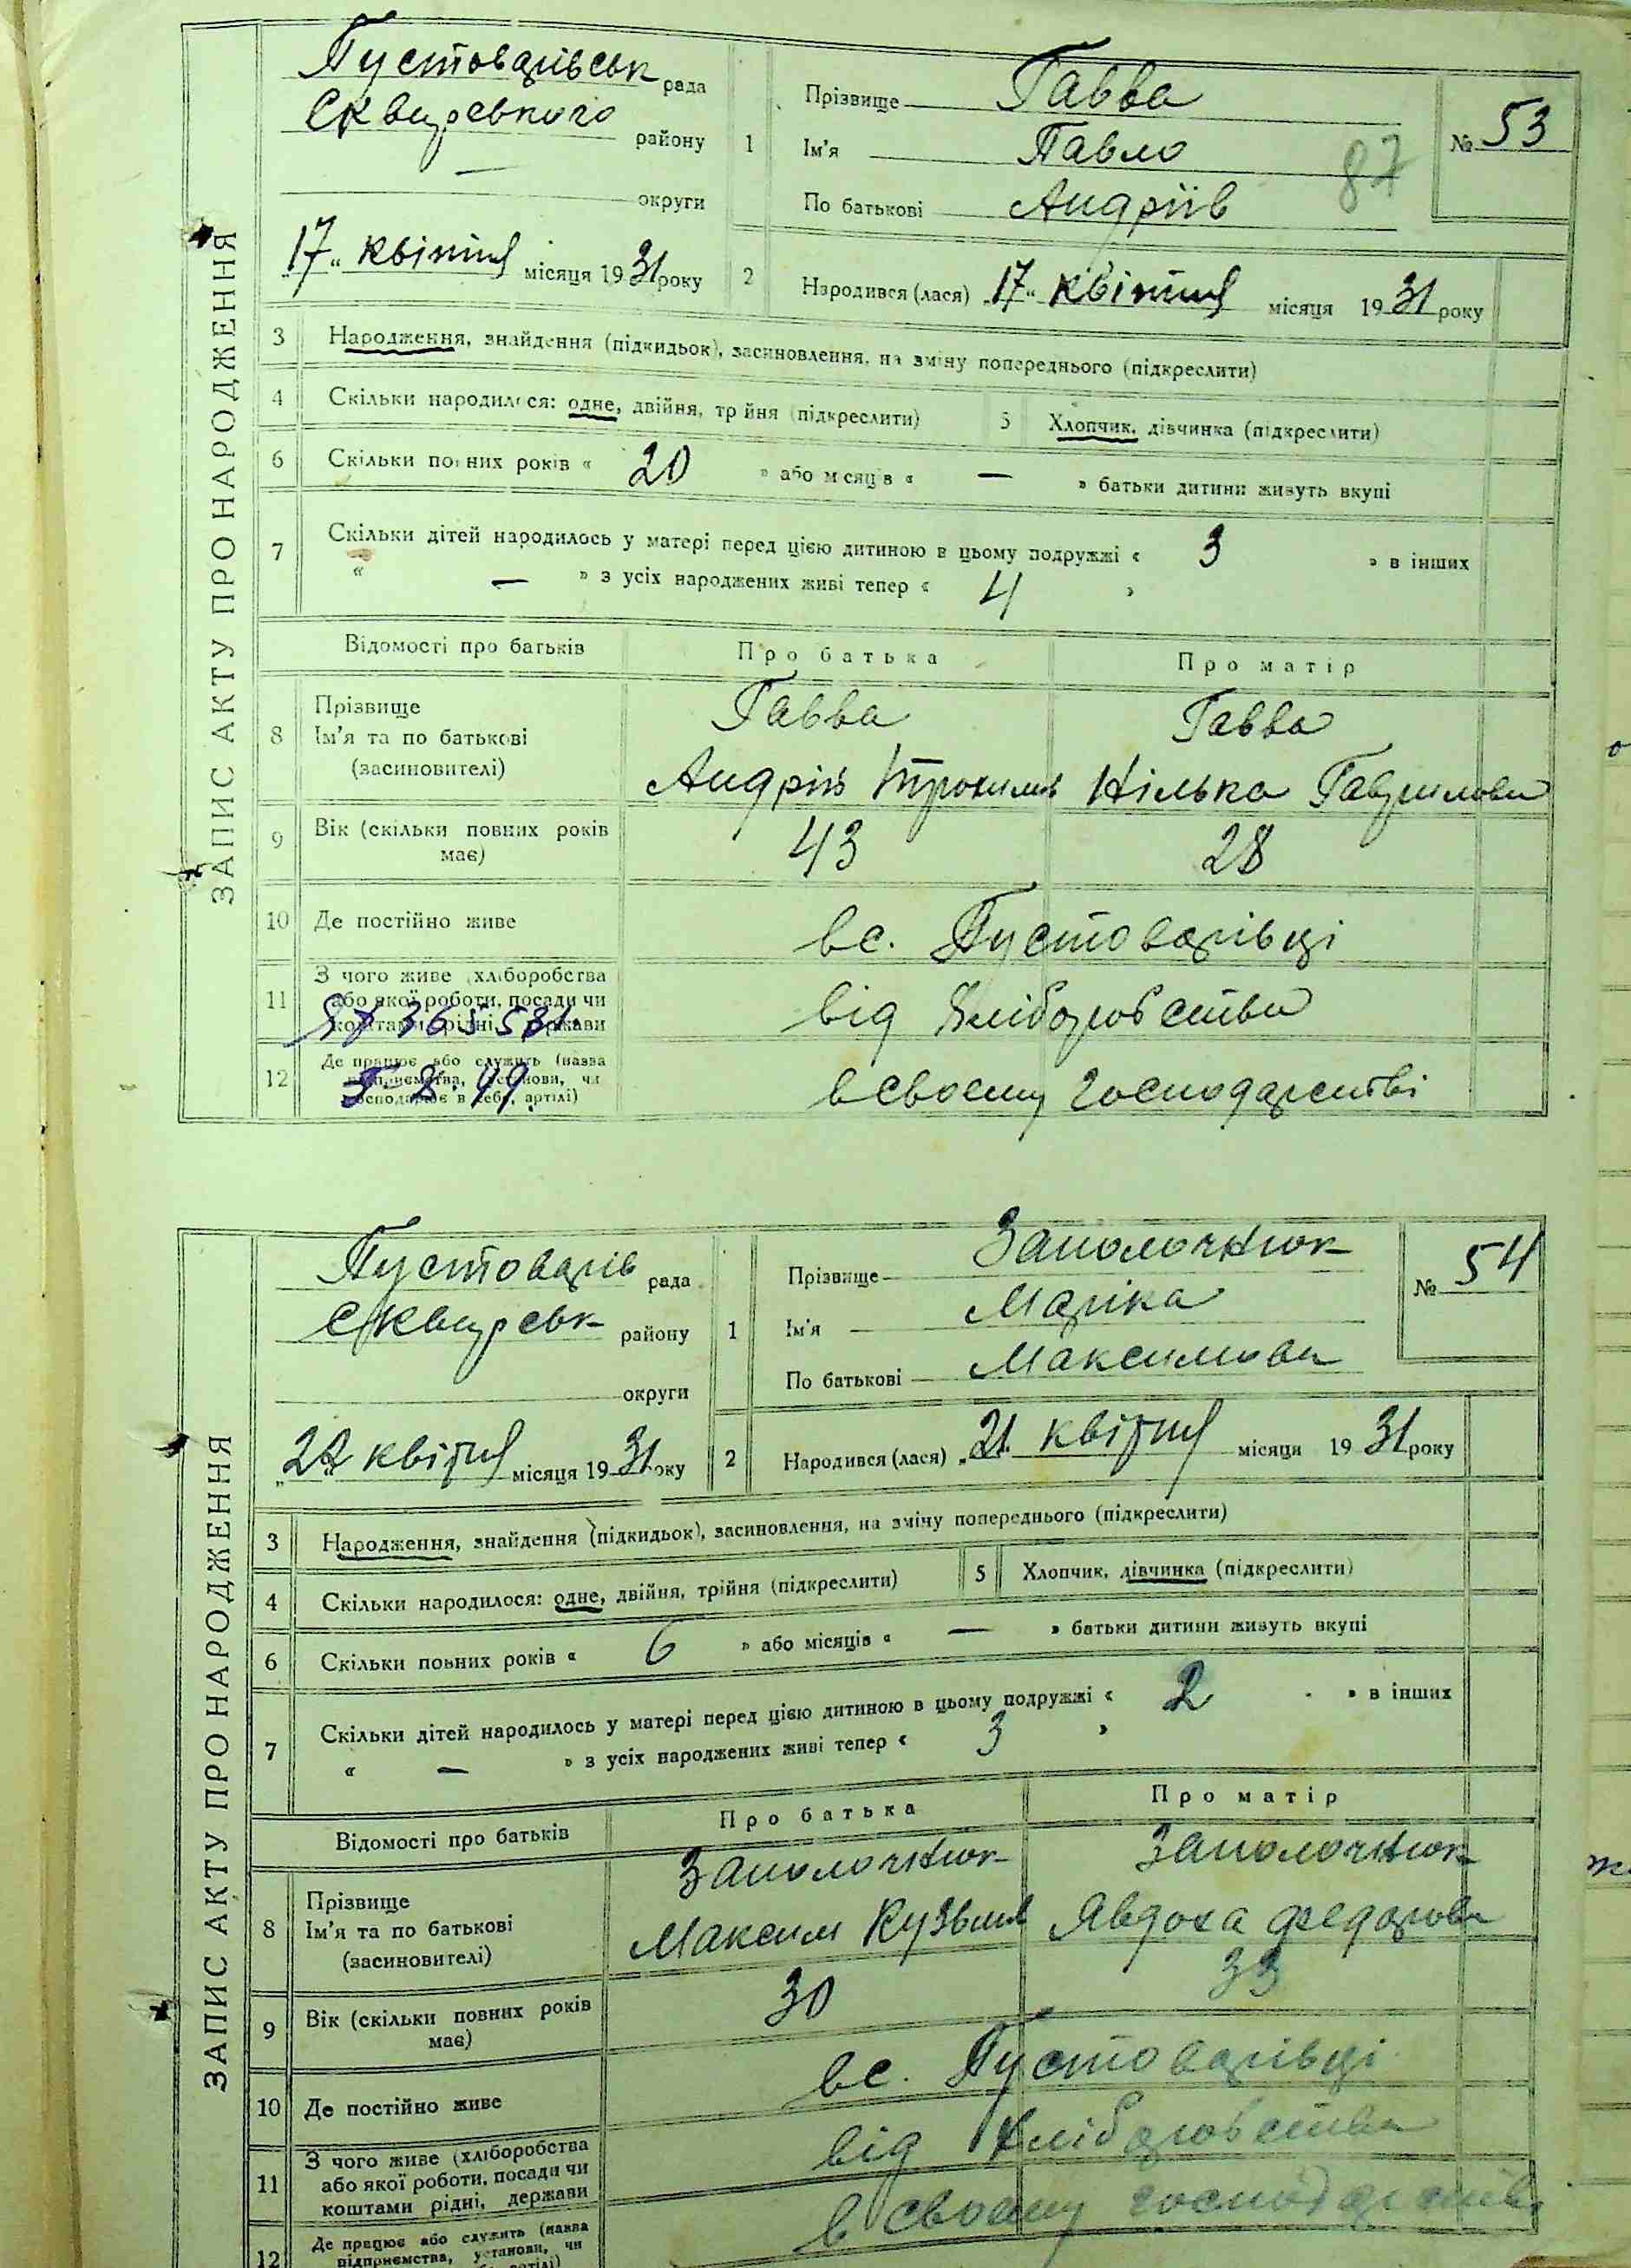 ЗАПИС АКТУ ПРО НАРОДЖЕННЯ
Пустоварівськ рада
Сквирського району
— округи
"17" квітня місяця 1931 року
1 Прізвище Гавва
Ім'я Павло
По батькові Андріїв
№ 53
87
2 Народився (лася) "17" квітня місяця 1931 року
3 Народження, знайдення (підкидьок), засиновлення, на зміну попереднього (підкреслити)
4 Скільки народилося: одне, двійня, трійня (підкреслити) 5 Хлопчик, дівчинка (підкреслити)
6 Скільки повних років « 20 » або місяців « — » батьки дитини живуть вкупі
7 Скільки дітей народилось у матері перед цією дитиною в цьому подружжі « 3 » в інших
« — » з усіх народжених живі тепер « 4 »
Відомості про батьків Про батька Про матір
8 Прізвище Ім'я та по батькові (засиновителі)
Гавва Гавва
Андрій Трохимів Нілька Гаврилова
9 Вік (скільки повних років має) 43 28
10 Де постійно живе в с. Пустоварівці
11 З чого живе (хліборобства або якої роботи, посади чи коштами рідні, держави від хліборобства
365531
12 Де працює або служить (назва підприємства, установи, чи господарює в себе, артілі) в своєму господарстві
5.8.49.
ЗАПИС АКТУ ПРО НАРОДЖЕННЯ
Пустоварів рада
Сквирськ району
округи
"22" квітня місяця 1931 року
1 Прізвище Заполочнюк
Ім'я Маріка
По батькові Максимова
№ 54
2 Народився (лася) "21" квітня місяця 1931 року
3 Народження, знайдення (підкидьок), засиновлення, на зміну попереднього (підкреслити)
4 Скільки народилося: одне, двійня, трійня (підкреслити) 5 Хлопчик, дівчинка (підкреслити)
6 Скільки повних років « 6 » або місяців « — » батьки дитини живуть вкупі
7 Скільки дітей народилось у матері перед цією дитиною в цьому подружжі « 2 » в інших
« — » з усіх народжених живі тепер « 3 »
Відомості про батьків Про батька Про матір
8 Прізвище Ім'я та по батькові (засиновителі)
Заполочнюк Заполочнюк
Максим Кузьмів Явдоха Федорова
9 Вік (скільки повних років має) 30 33
10 Де постійно живе в с. Пустоварівці
11 З чого живе (хліборобства або якої роботи, посади чи коштами рідні, держави від хліборобства
12 Де працює або служить (назва підприємства, установи, чи артілі) в своєму господарстві